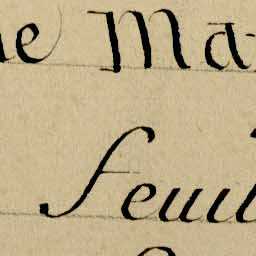 ne Ma
feuil